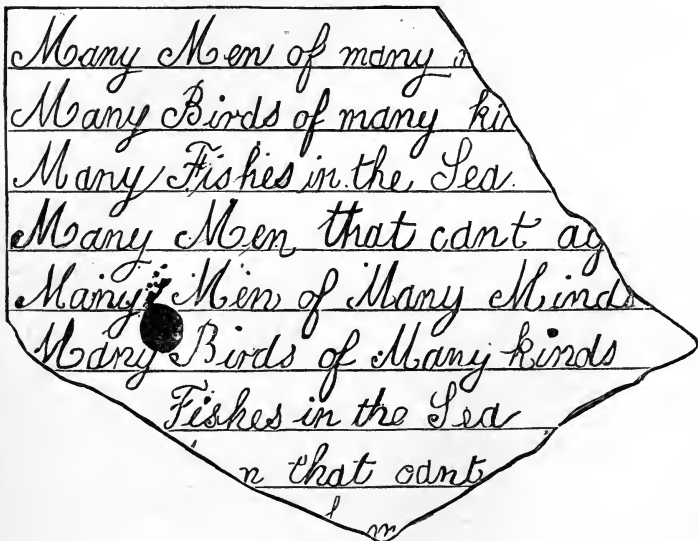 Many Men of many
Many Birds of many
Many Fishes in the Sea.
Many Men that cant
Many Men of Many Minds
Many Birds of Many kinds
Fishes in the Sea
that cant